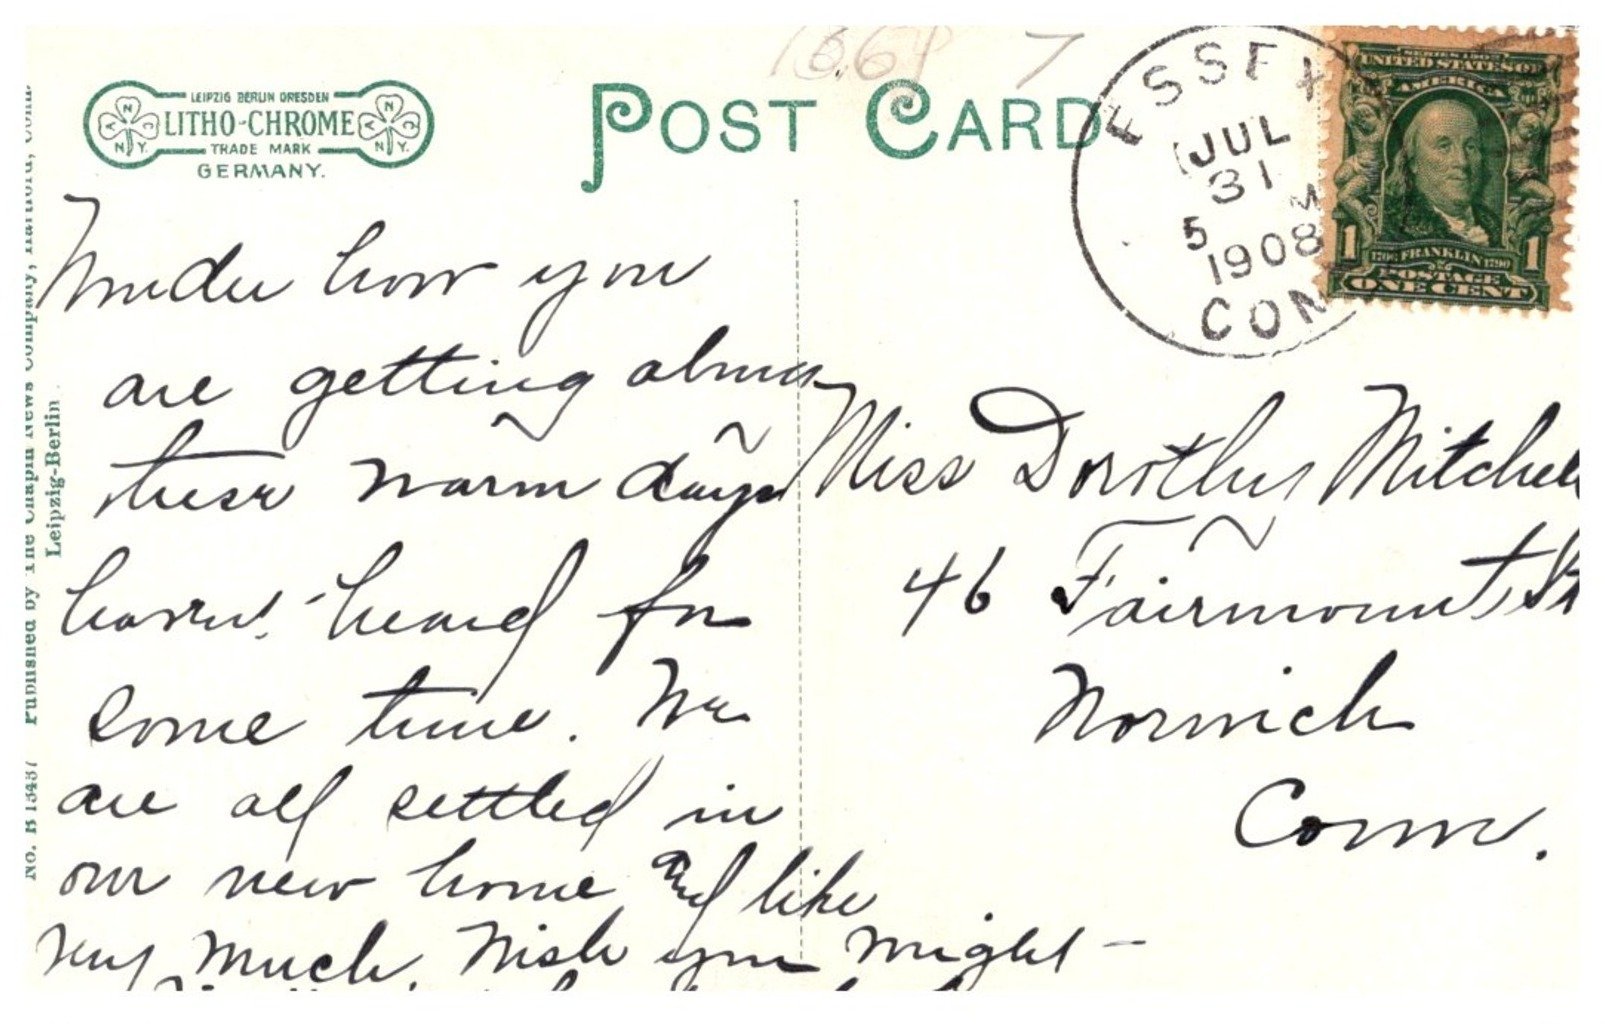 LEIPZIG BERLIN DRESDEN
LITHO-CHROME
TRADE MARK
GERMANY.
N Y C
N Y C
POST CARD
1864 7
ESSEX
JUL
31
5 M
1908
CON
SERIES 1902
UNITED STATES OF
AMERICA
1 1
1706 FRANKLIN 1790
POSTAGE
ONE CENT
No. H 13437 Published by The Chapin News Company, Hartford, Conn.
Leipzig-Berlin
Wonder how you
are getting along
these warm days
haven't heard for
some time. We
are all settled in
our new home and like
very much. Wish you might
Miss Dorothy Mitchell
46 Fairmount St
Norwich
Conn.